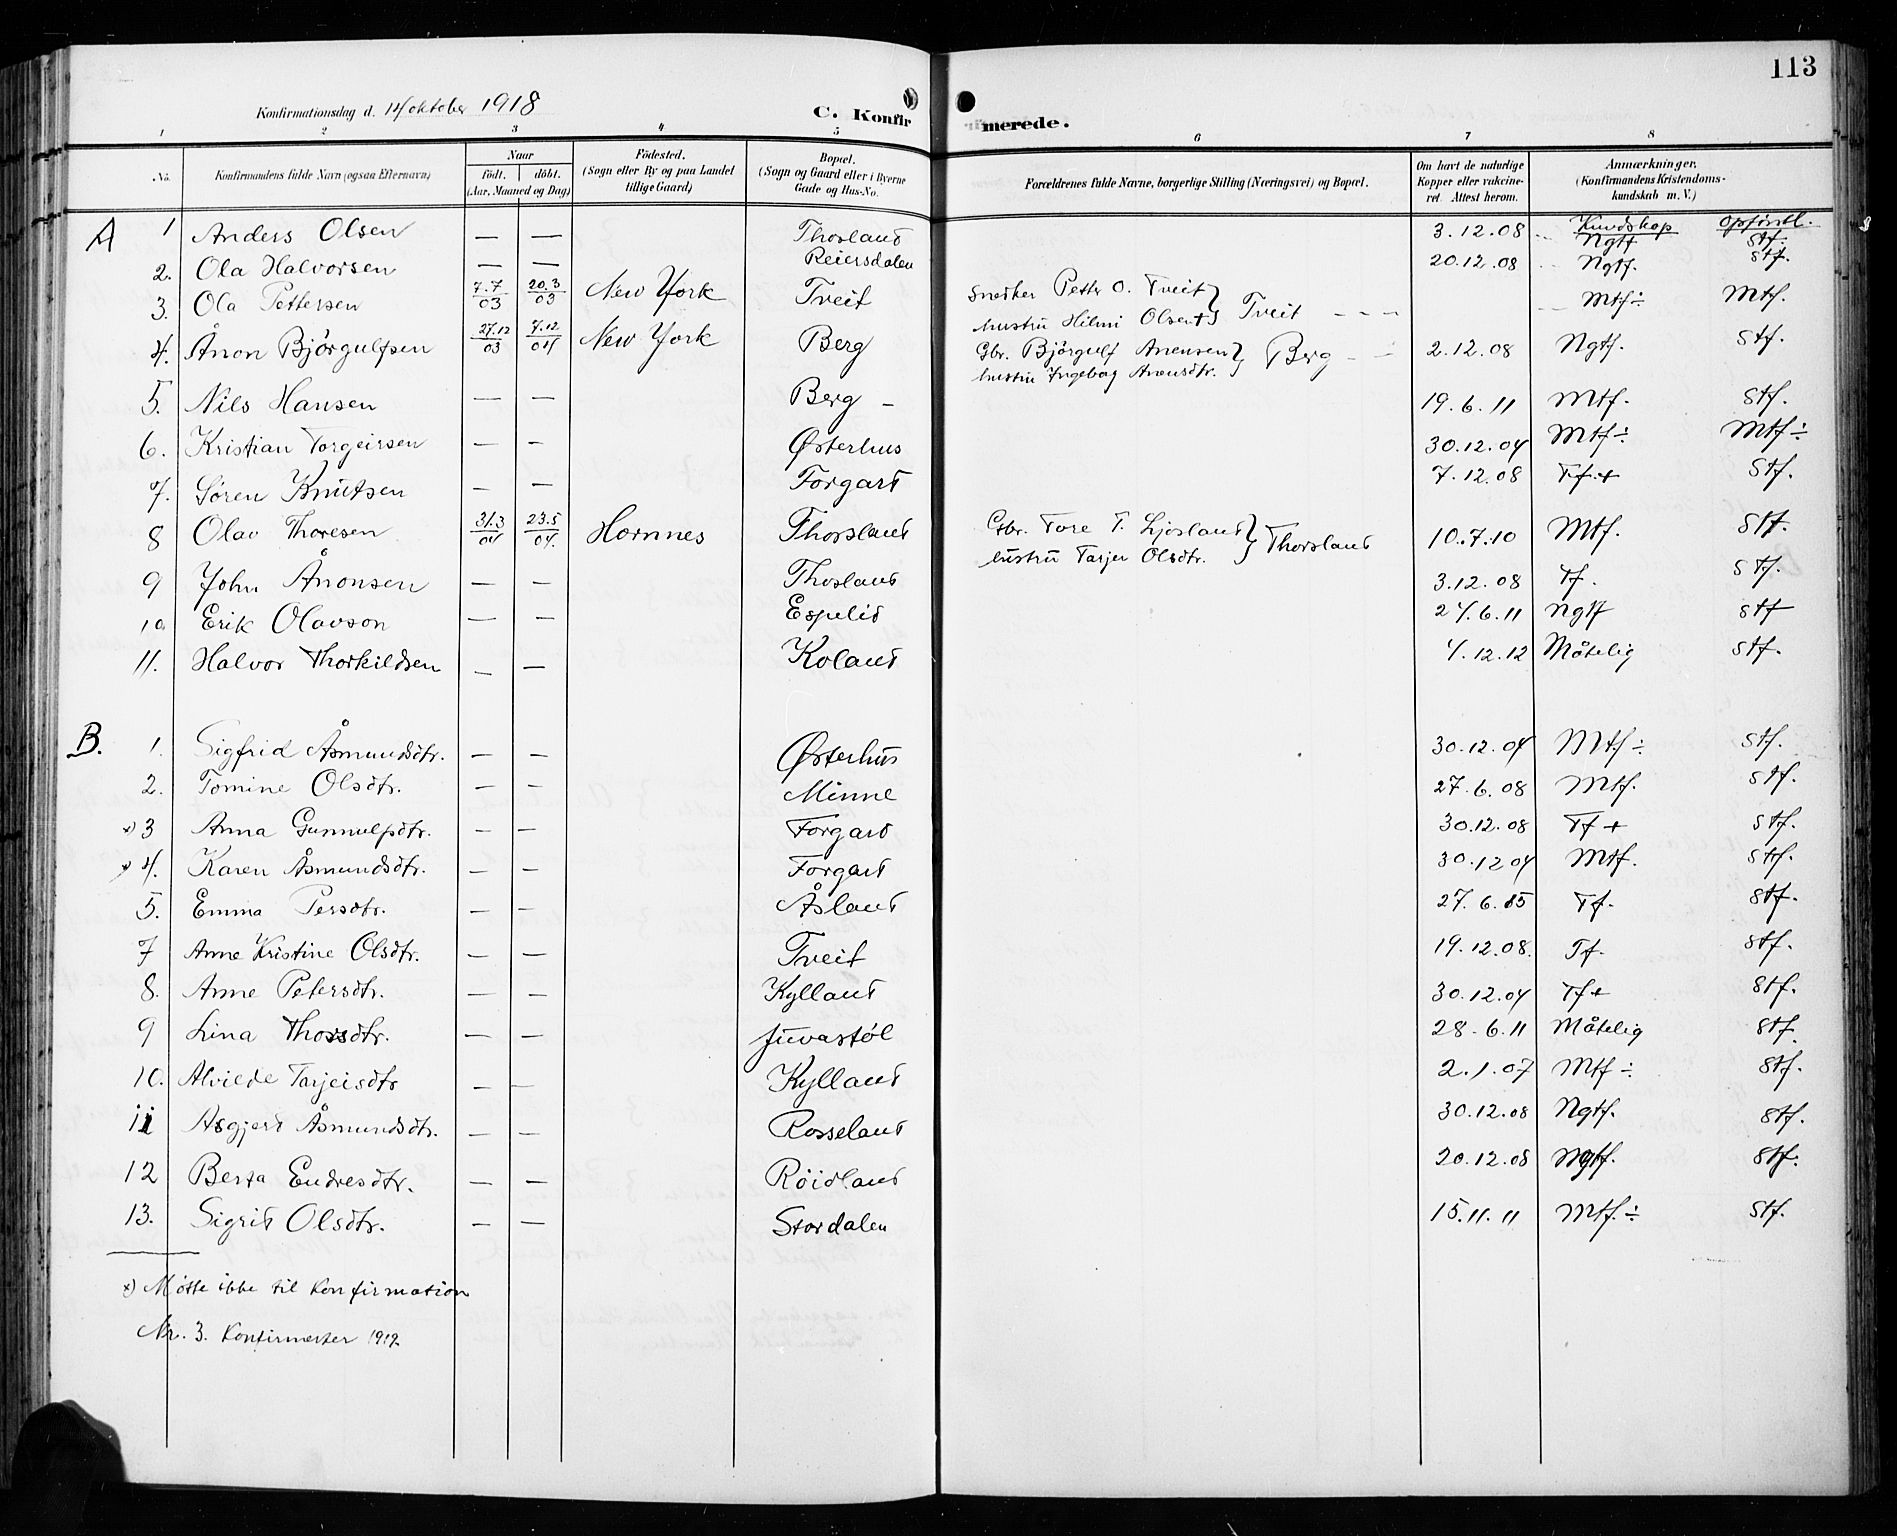 113
Konfirmationsdag d. 14/oktober 1918
C. Konfir merede.
1 2 3 4 5 6 7 8
No.
Konfirmandens fulde Navn (ogsaa Efternavn)
Naar
födt. döbt.
(Aar, Maaned og Dag)
Födested.
(Sogn eller By og paa Landet tillige Gaard)
Bopæl.
(Sogn og Gaard eller i Byerne Gade og Hus-No.
Forældrenes fulde Navne, borgerlige Stilling (Næringsvei) og Bopæl.
Om havt de naturlige Kopper eller vakcineret. Attest herom.
Anmærkninger.
(Konfirmandens Kristendomskundskab m. V.)
Kundskap opførsel.
A 1 Anders Olsen — — Thosland 3.12.08 Ngtf Stf.
2. Ola Halvorsen — — Reiersdalen 20.12.08 Ngtf. Stf.
3. Ola Pettersen 7.7/03 20.3/03 New York Tveit Snedker Petter O. Tveit } Tveit — — — Mtf÷ Mtf.
hustru Hilmi Olsen
4. Ånon Björgulfsen 27.12/03 7.12/04 New York Berg Gbr. Björgulf Anensen } Berg — — 2.12.08 Ngtf. Stf.
hustru Ingeborg Anensdtr.
5. Nils Hansen — — Berg – 19.6.11 Mtf. Stf.
6. Kristian Torgeirsen — — Østerhus 30.12.04 Mtf÷ Mtf÷
7. Søren Knutsen — — Forgard 7.12.08 Tf.+ Stf.
8 Olav Thoresen 31.3/04 23.5/04. Hornnes Thorsland Gbr. Tore T. Ljosland } Thorsland 10.7.10 Mtf. Stf.
hustru Tarjer Olsdtr.
9 John Ånonsen — — Thosland 3.12.08 Tf. Stf.
10. Erik Olavson — — Espelid 24.6.11 Ngtf Stf
11. Halvor Thorkildsen — — Koland 4.12.12 Måtelig Stf.
B. 1. Sigfrid Åsmundsdtr. — — Østerhus 30.12.04 Mtf÷ Stf.
2. Tomine Olsdtr. — — Minne 27.6.08 Mtf. Stf.
x) 3 Anna Gunnulfsdtr. — — Forgard 30.12.08 Tf + Stf.
x 4. Karen Åsmundsdtr. — — Forgard 30.12 04 Mtf. Stf.
5. Emma Persdtr. — — Åsland 27.6.05 Tf. Stf.
7 Anne Kristine Olsdtr. — — Tveit 19.12.08. Tf. Stf.
8. Anne Petersdtr. — — Kylland 30.12.04 Tf+ Stf.
9 Lina Thorsdtr. — — Juvastøl 28.6.11 Måtelig Stf.
10. Alvilde Tarjeisdtr — — Kylland 2.1.07 Mtf ÷ Stf.
11 Asgjerd Åsmundsdtr. — — Rosseland 30.12.08 Ngtf. Stf.
12 Berta Endresdtr. — — Röidland 20.12.08 Ngtf. Stf.
13. Sigrid Olsdtr. — — Stordalen 15.11.11 Mtf.÷ Stf.
x) Møtte ikke til konfirmation
Nr. 3. konfirmerter 1919